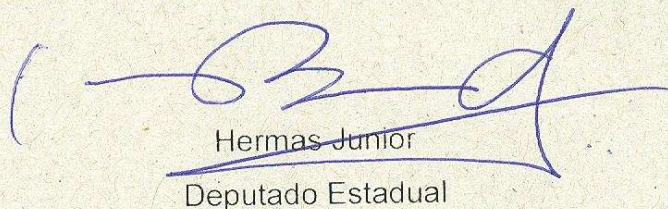 Hermas Junior
Deputado Estadual